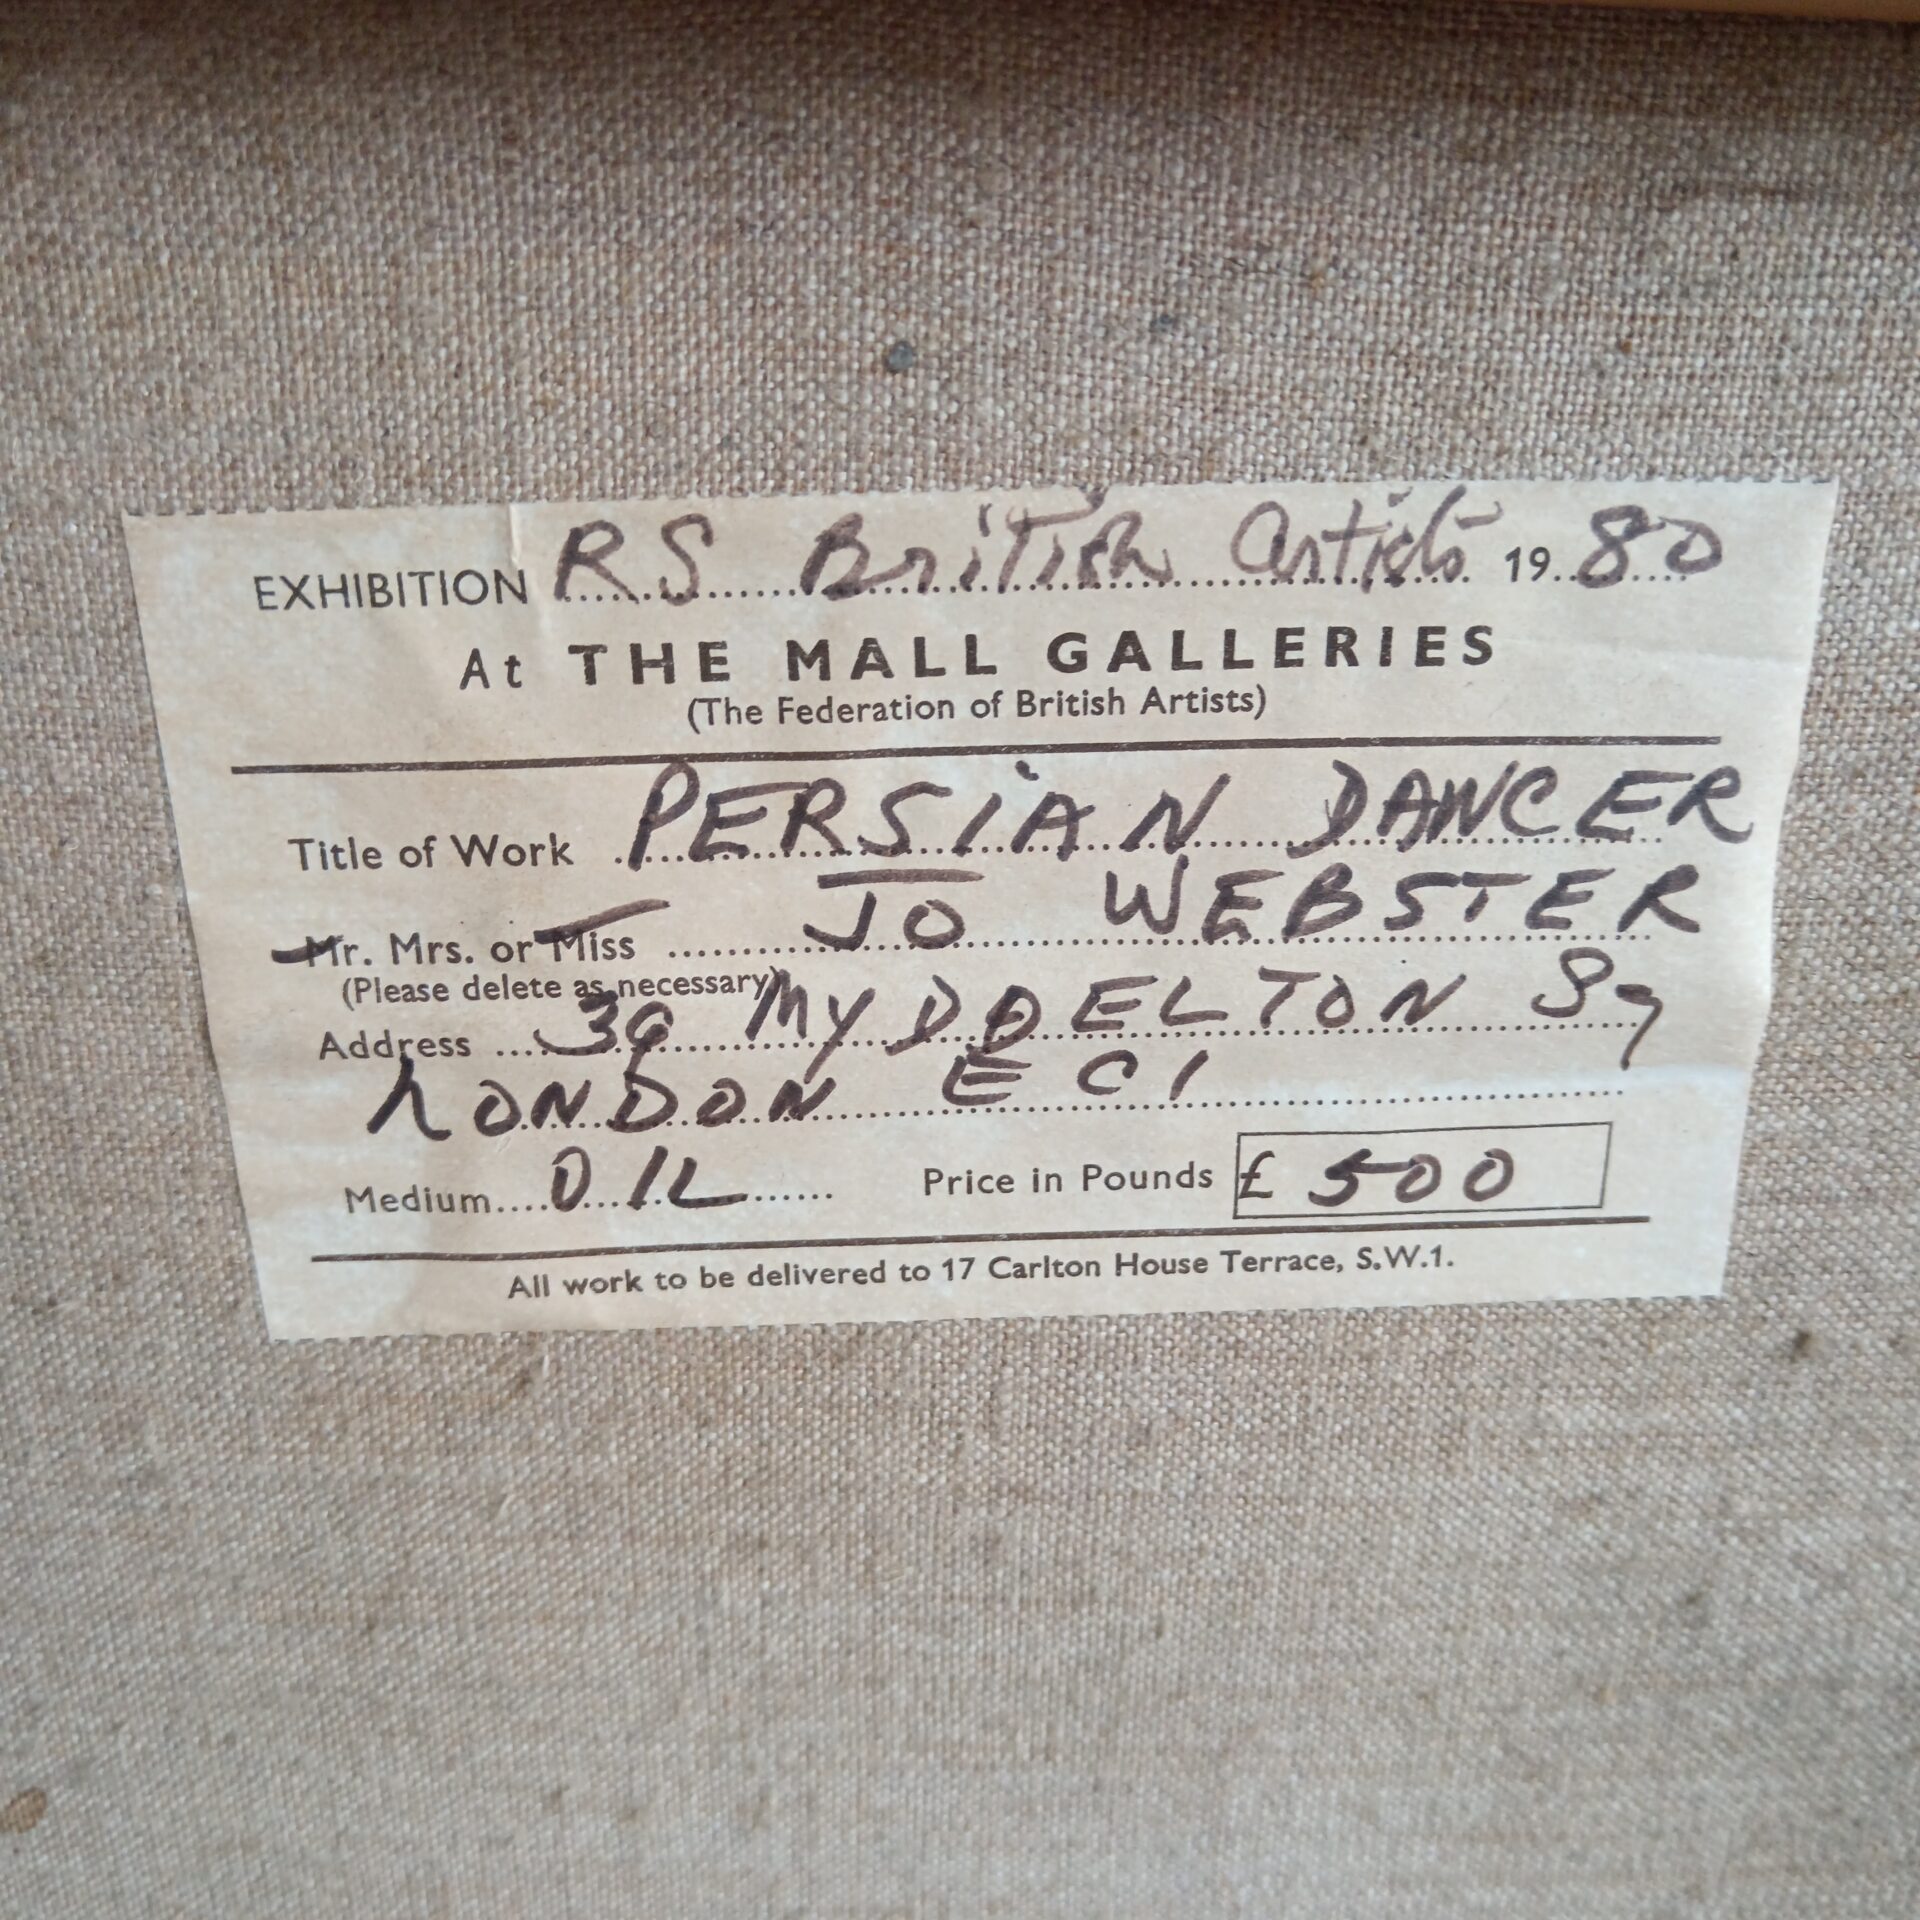 EXHIBITION RS British Artists 1980
At THE MALL GALLERIES
(The Federation of British Artists)
Title of Work PERSIAN DANCER
Mr. Mrs. or Miss JO WEBSTER
(Please delete as necessary)
Address 39 MYDDELTON Sq
LONDON EC1
Medium....OIL...... Price in Pounds £ 500
All work to be delivered to 17 Carlton House Terrace, S.W.1.